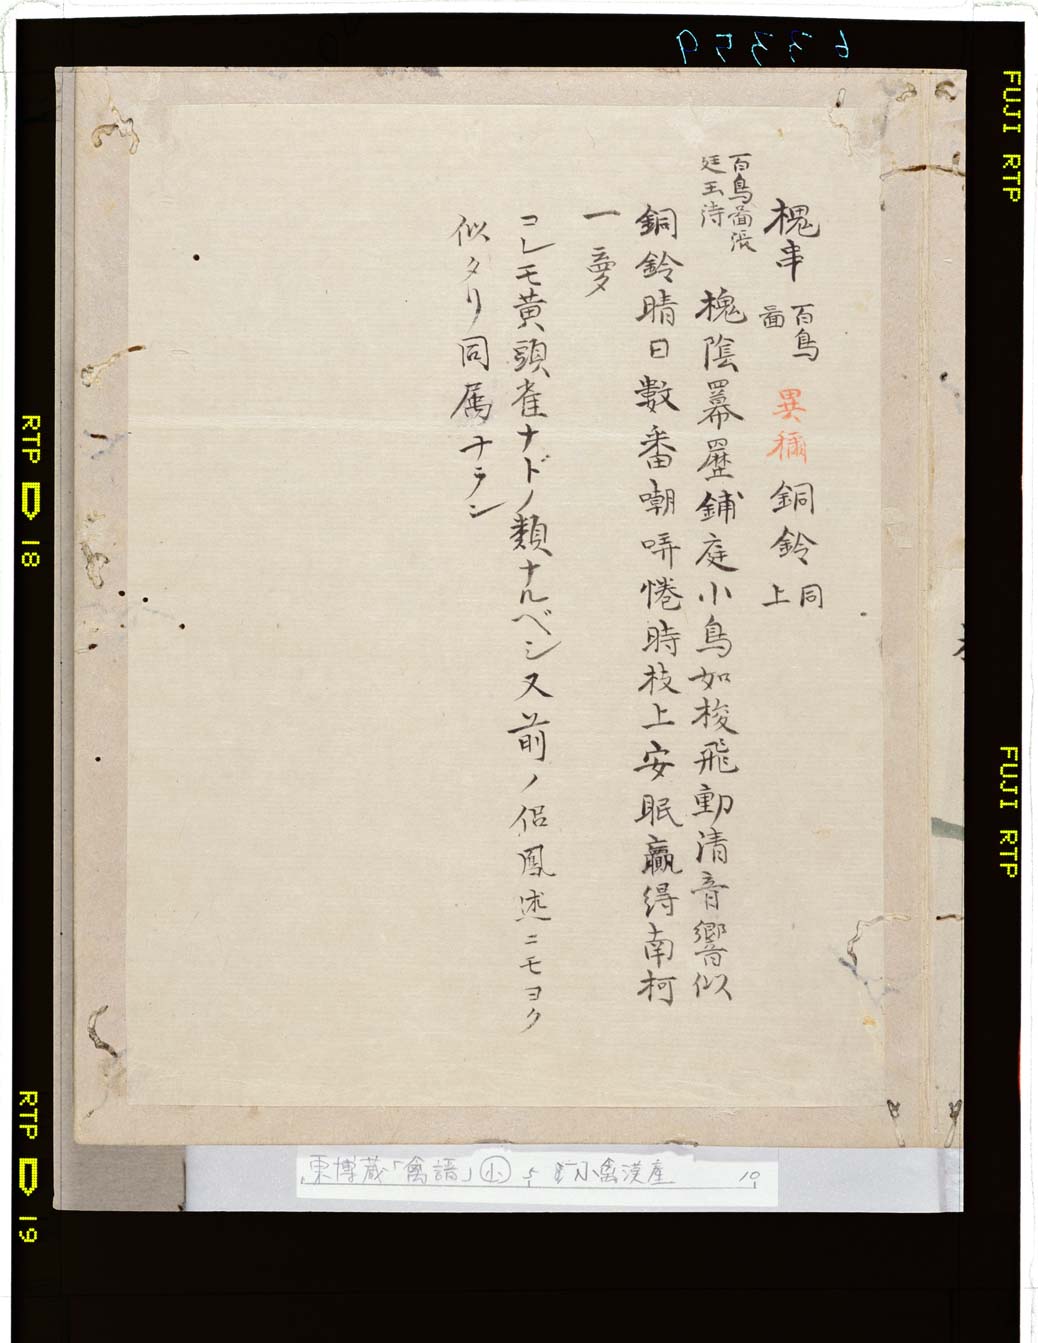 槐串 百鳥圖 異稱 銅鈴 同上
百鳥圖張廷玉詩
槐陰冪歷鋪庭小鳥如梭飛動清音響似
銅鈴晴日數番嘲哢惓時枝上安眠贏得南柯
一夢
コレモ黄頭雀ナドノ類ナルベシ又前ノ侶鳳述ニモヨク
似タリ同属ナラン
東博蔵「禽譜」小 5 小禽漢産 10
63359
FUJI RTP
FUJI RTP
RTP D 18
RTP D 19